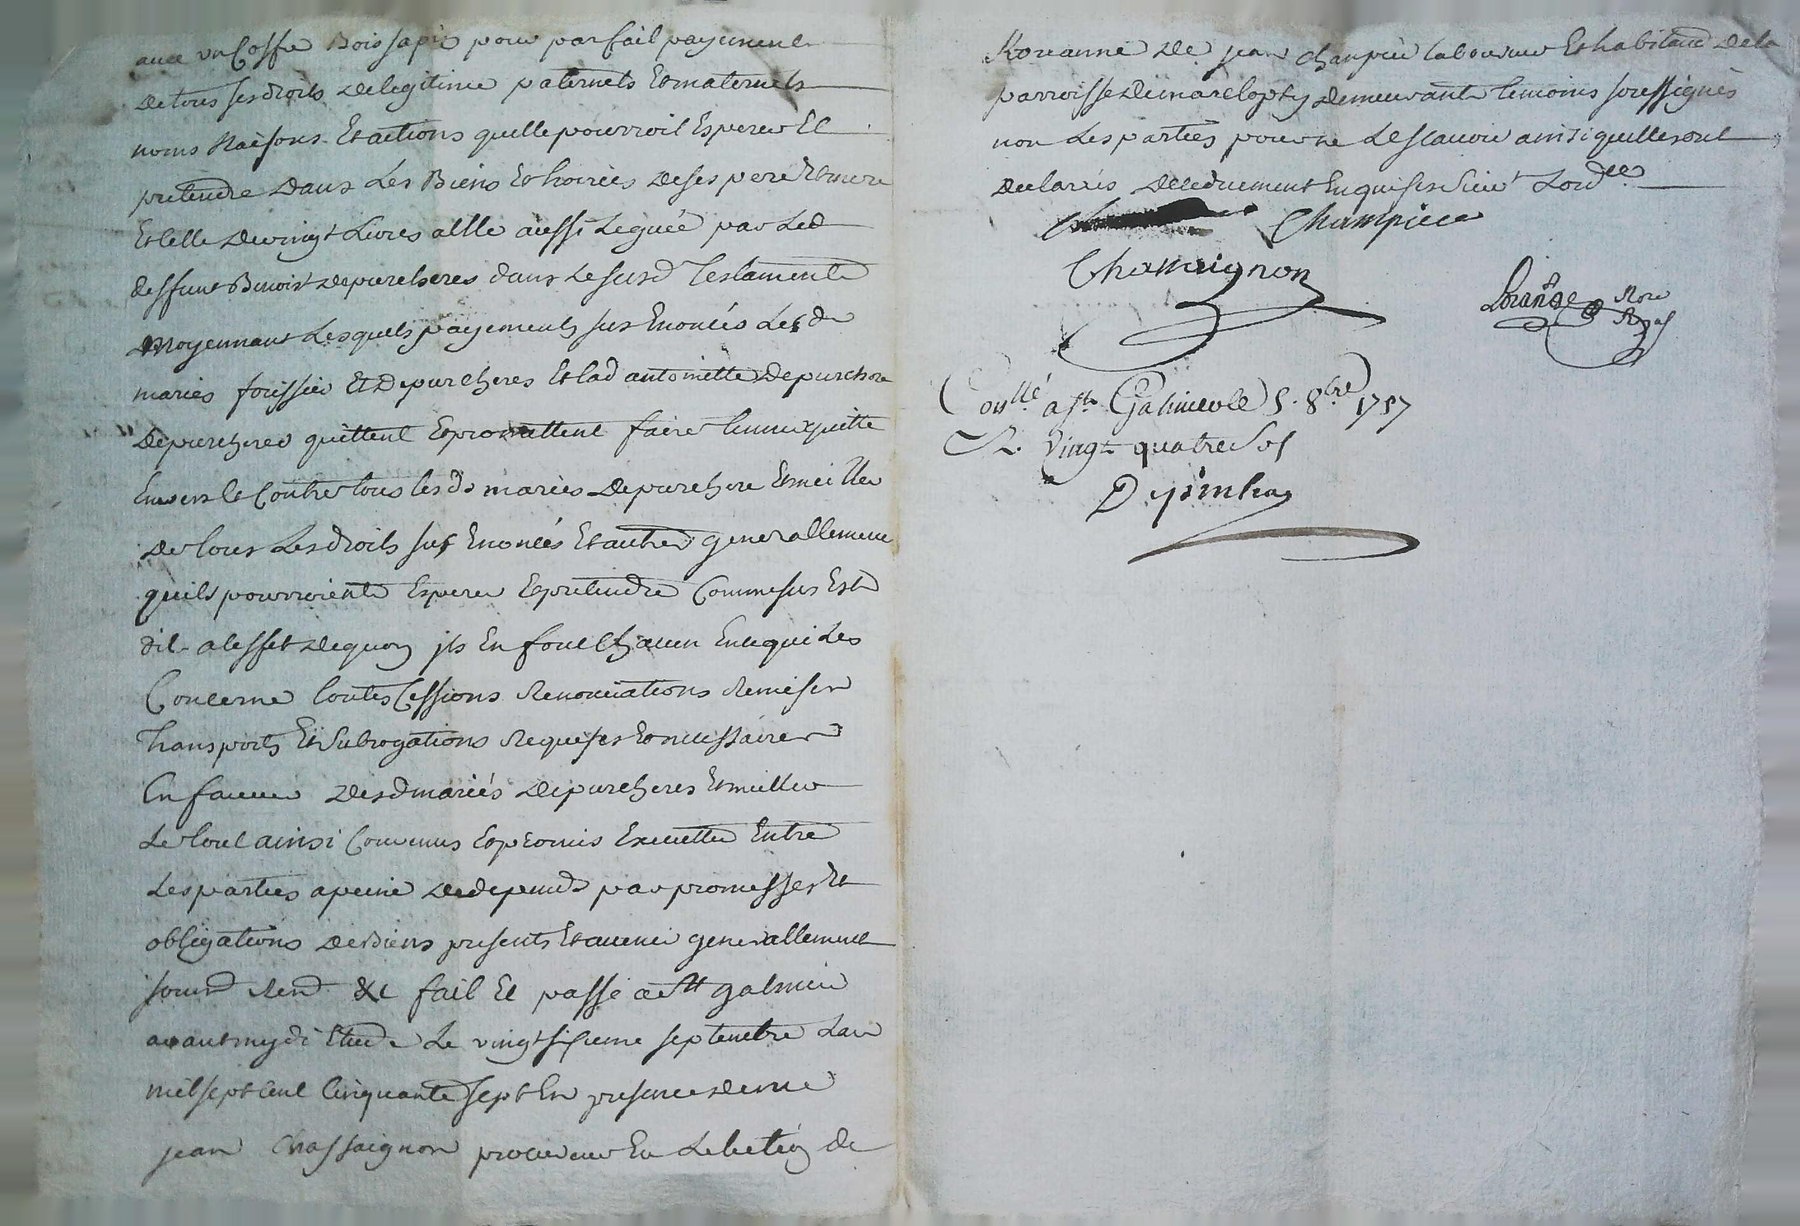 avec un Coffre Bois sapin pour parfait payement
de tous ses droits de legitime paternels Et maternels
noms Raisons Et actions quelle pourroit Esperer Et
pretendre dans Les Biens Et hoiries de ses pere Et mere
Et celle de vingt Livres a Elle aussi Leguée par Led
deffunt Benoist depurcheres dans Le susd Testament
Moyennant Lesquels payements sus Enoncés Lesd
mariés foissier Et Depurcheres Et lad antoinette Depurchere
Depurcheres quittent Et promettent faire tenir quitte
Envers Et Contre tous lesds mariés Depurchere Et meiller
De tous Les droits sus Enoncés Et autres generallement
quils pourroient Esperer Et pretendre Comme sus Est
dit a Leffet de quoy jls En font Chacun En ce qui Les
Concerne toutes Cessions Renonciations Remises
transports Et subrogations Requises Et necessaires
En faveur desd mariés depurcheres Et meiller
Le tout ainsi Convenus Et promis Executter Entre
Les parties a peine de depends par promesses Et
obligations de Biens presents Et avenir generallement
soumd Rend &c fait Et passé a St galmier
avant mydi Etude Le vingt sixieme septembre Lan
mil sept cent Cinquante sept En presence de me
jean Chassaignon procureur En Lelection de
Roanne De jean Champier laboureur Et habitant de la
parroisse de marclopty demeurants temoins soussignés
non Les parties pour ne Le scavoir ainsi quelles ont
declarés de ce duement Enquises suivt Lordce
Champier
Chassaignon
Lorange Nore Royal
Conllé a St Galmier le 5. 8bre 1757
R. vingt quatre sols